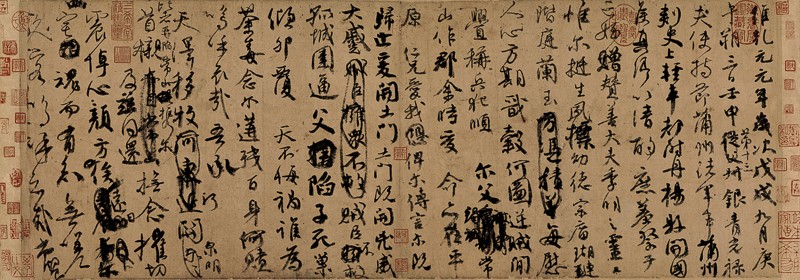 維乾元元年歲次戊戌九月庚
午朔三日壬申第十三從父銀青光祿
夫使持節蒲州諸軍事蒲州
刺史上輕車都尉丹楊縣開國
侯真卿以清酌庶羞祭于
亡姪贈贊善大夫季明之靈曰
惟爾挺生夙標幼德宗廟瑚璉
階庭蘭玉方憑積善每慰
人心方期戩穀何圖逆賊閒
釁稱兵犯順爾父竭誠常
山作郡余時受命亦在平
原仁兄愛我俾爾傳言爾既
歸止爰開土門土門既開凶威
大蹙賊臣擁眾不救賊臣不救
孤城圍逼父陷子死巢
傾卵覆天不悔禍誰為
荼毒念爾遘殘百身何贖
嗚乎哀哉吾承
天澤移牧河關泉明
比者再陷常山攜爾
首櫬及茲同還撫念摧切
震悼心顏方俟遠日
幽宅魂而有知無嗟
久客嗚呼哀哉尚饗